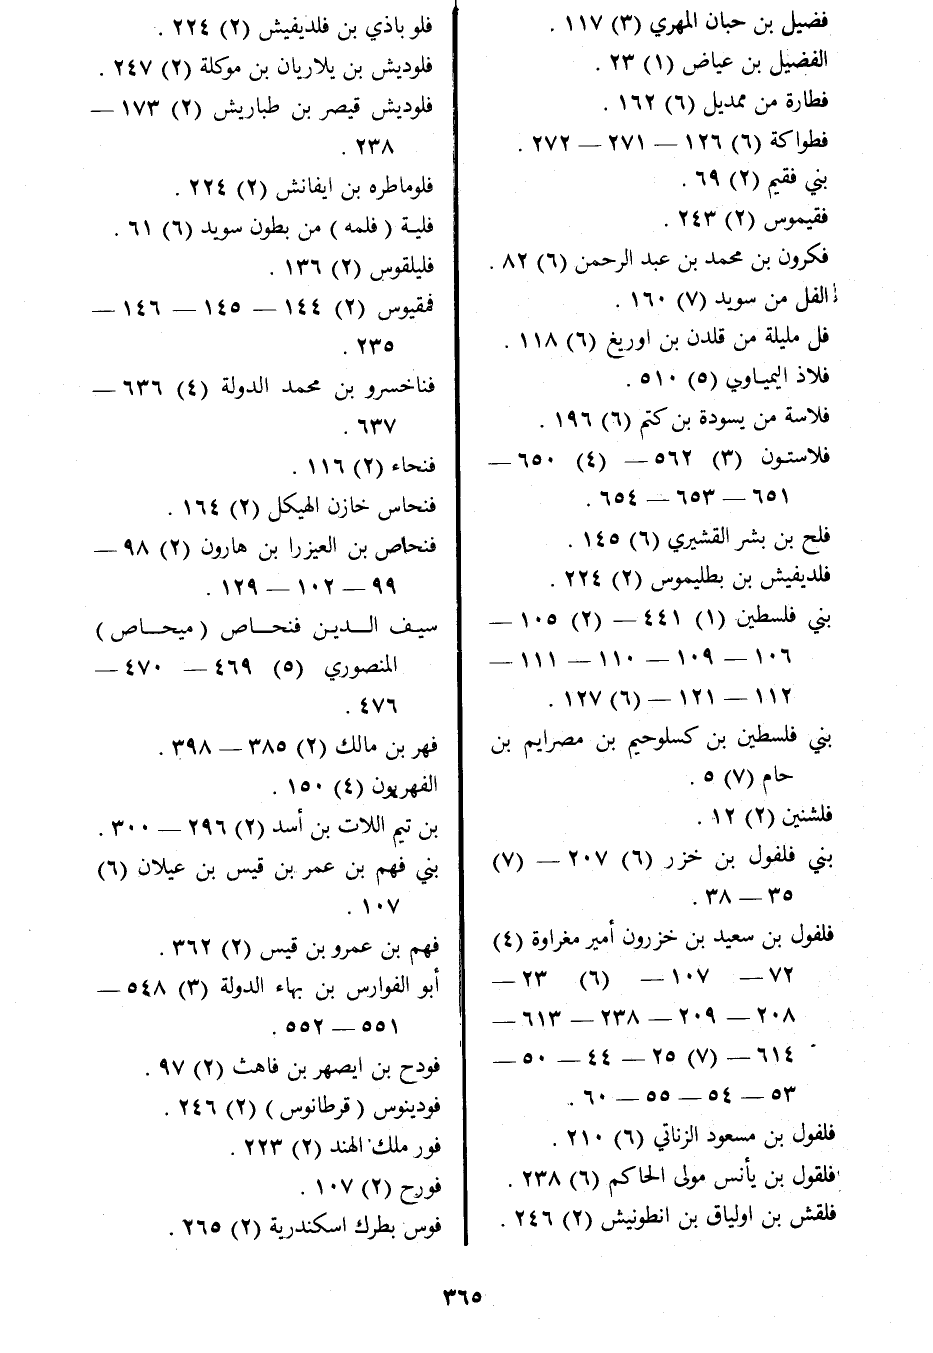 فضيل بن حبان المهري (٣) ١١٧ .
الفضيل بن عياض (١) ٢٣ .
فطارة من ممديل (٦) ١٦٢ .
فطواكة (٦) ١٢٦ — ٢٧١ — ٢٧٢ .
بني فقيم (٢) ٦٩ .
فقيموس (٢) ٢٤٣ .
فكرون بن محمد بن عبد الرحمن (٦) ٨٢ .
الفل من سويد (٧) ١٦٠ .
فل مليلة من قلدن بن اوريغ (٦) ١١٨ .
فلاذ اليمياوي (٥) ٥١٠ .
فلاسة من يسودة بن كتم (٦) ١٩٦ .
فلاستون (٣) ٥٦٢ — (٤) ٦٥٠ —
٦٥١ — ٦٥٣ — ٦٥٤ .
فلح بن بشر القشيري (٦) ١٤٥ .
فلديفيش بن بطليموس (٢) ٢٢٤ .
بني فلسطين (١) ٤٤١ — (٢) ١٠٥ —
١٠٦ — ١٠٩ — ١١٠ — ١١١ —
١١٢ — ١٢١ — (٦) ١٢٧ .
بني فلسطين بن كسلوحيم بن مصرايم بن
حام (٧) ٥ .
فلشنين (٢) ١٢ .
بني فلفول بن خزر (٦) ٢٠٧ — (٧)
٣٥ — ٣٨ .
فلفول بن سعيد بن خزرون أمير مغراوة (٤)
٧٢ — ١٠٧ — (٦) ٢٣ —
٢٠٨ — ٢٠٩ — ٢٣٨ — ٦١٣ —
٦١٤ — (٧) ٢٥ — ٤٤ — ٥٠ —
٥٣ — ٥٤ — ٥٥ — ٦٠ .
فلفول بن مسعود الزناتي (٦) ٢١٠ .
فلقول بن يأنس مولى الحاكم (٦) ٢٣٨ .
فلقش بن اولياق بن انطونيش (٢) ٢٤٦ .
فلو باذي بن فلديفيش (٢) ٢٢٤ .
فلوديش بن يلاريان بن موكلة (٢) ٢٤٧ .
فلوديش قيصر بن طباريش (٢) ١٧٣ —
٢٣٨ .
فلوماطره بن ايفانش (٢) ٢٢٤ .
فلية ( فلمه ) من بطون سويد (٦) ٦١ .
فليلقوس (٢) ١٣٦ .
فمقيوس (٢) ١٤٤ — ١٤٥ — ١٤٦ —
٢٣٥ .
فناخسرو بن محمد الدولة (٤) ٦٣٦ —
٦٣٧ .
فنحاء (٢) ١١٦ .
فنحاس خازن الهيكل (٢) ١٦٤ .
فنحاص بن العيزرا بن هارون (٢) ٩٨ —
٩٩ — ١٠٢ — ١٢٩ .
سيف الدين فنحاص ( ميحاص )
المنصوري (٥) ٤٦٩ — ٤٧٠ —
٤٧٦ .
فهر بن مالك (٢) ٣٨٥ — ٣٩٨ .
الفهريون (٤) ١٥٠ .
بن تيم اللات بن أسد (٢) ٢٩٦ — ٣٠٠ .
بني فهم بن عمر بن قيس بن عيلان (٦)
١٠٧ .
فهم بن عمرو بن قيس (٢) ٣٦٢ .
أبو الفوارس بن بهاء الدولة (٣) ٥٤٨ —
٥٥١ — ٥٥٢ .
فودح بن ايصهر بن فاهث (٢) ٩٧ .
فودينوس ( قرطانوس ) (٢) ٢٤٦ .
فور ملك الهند (٢) ٢٢٣ .
فورح (٢) ١٠٧ .
فوس بطرك اسكندرية (٢) ٢٦٥ .
٣٦٥